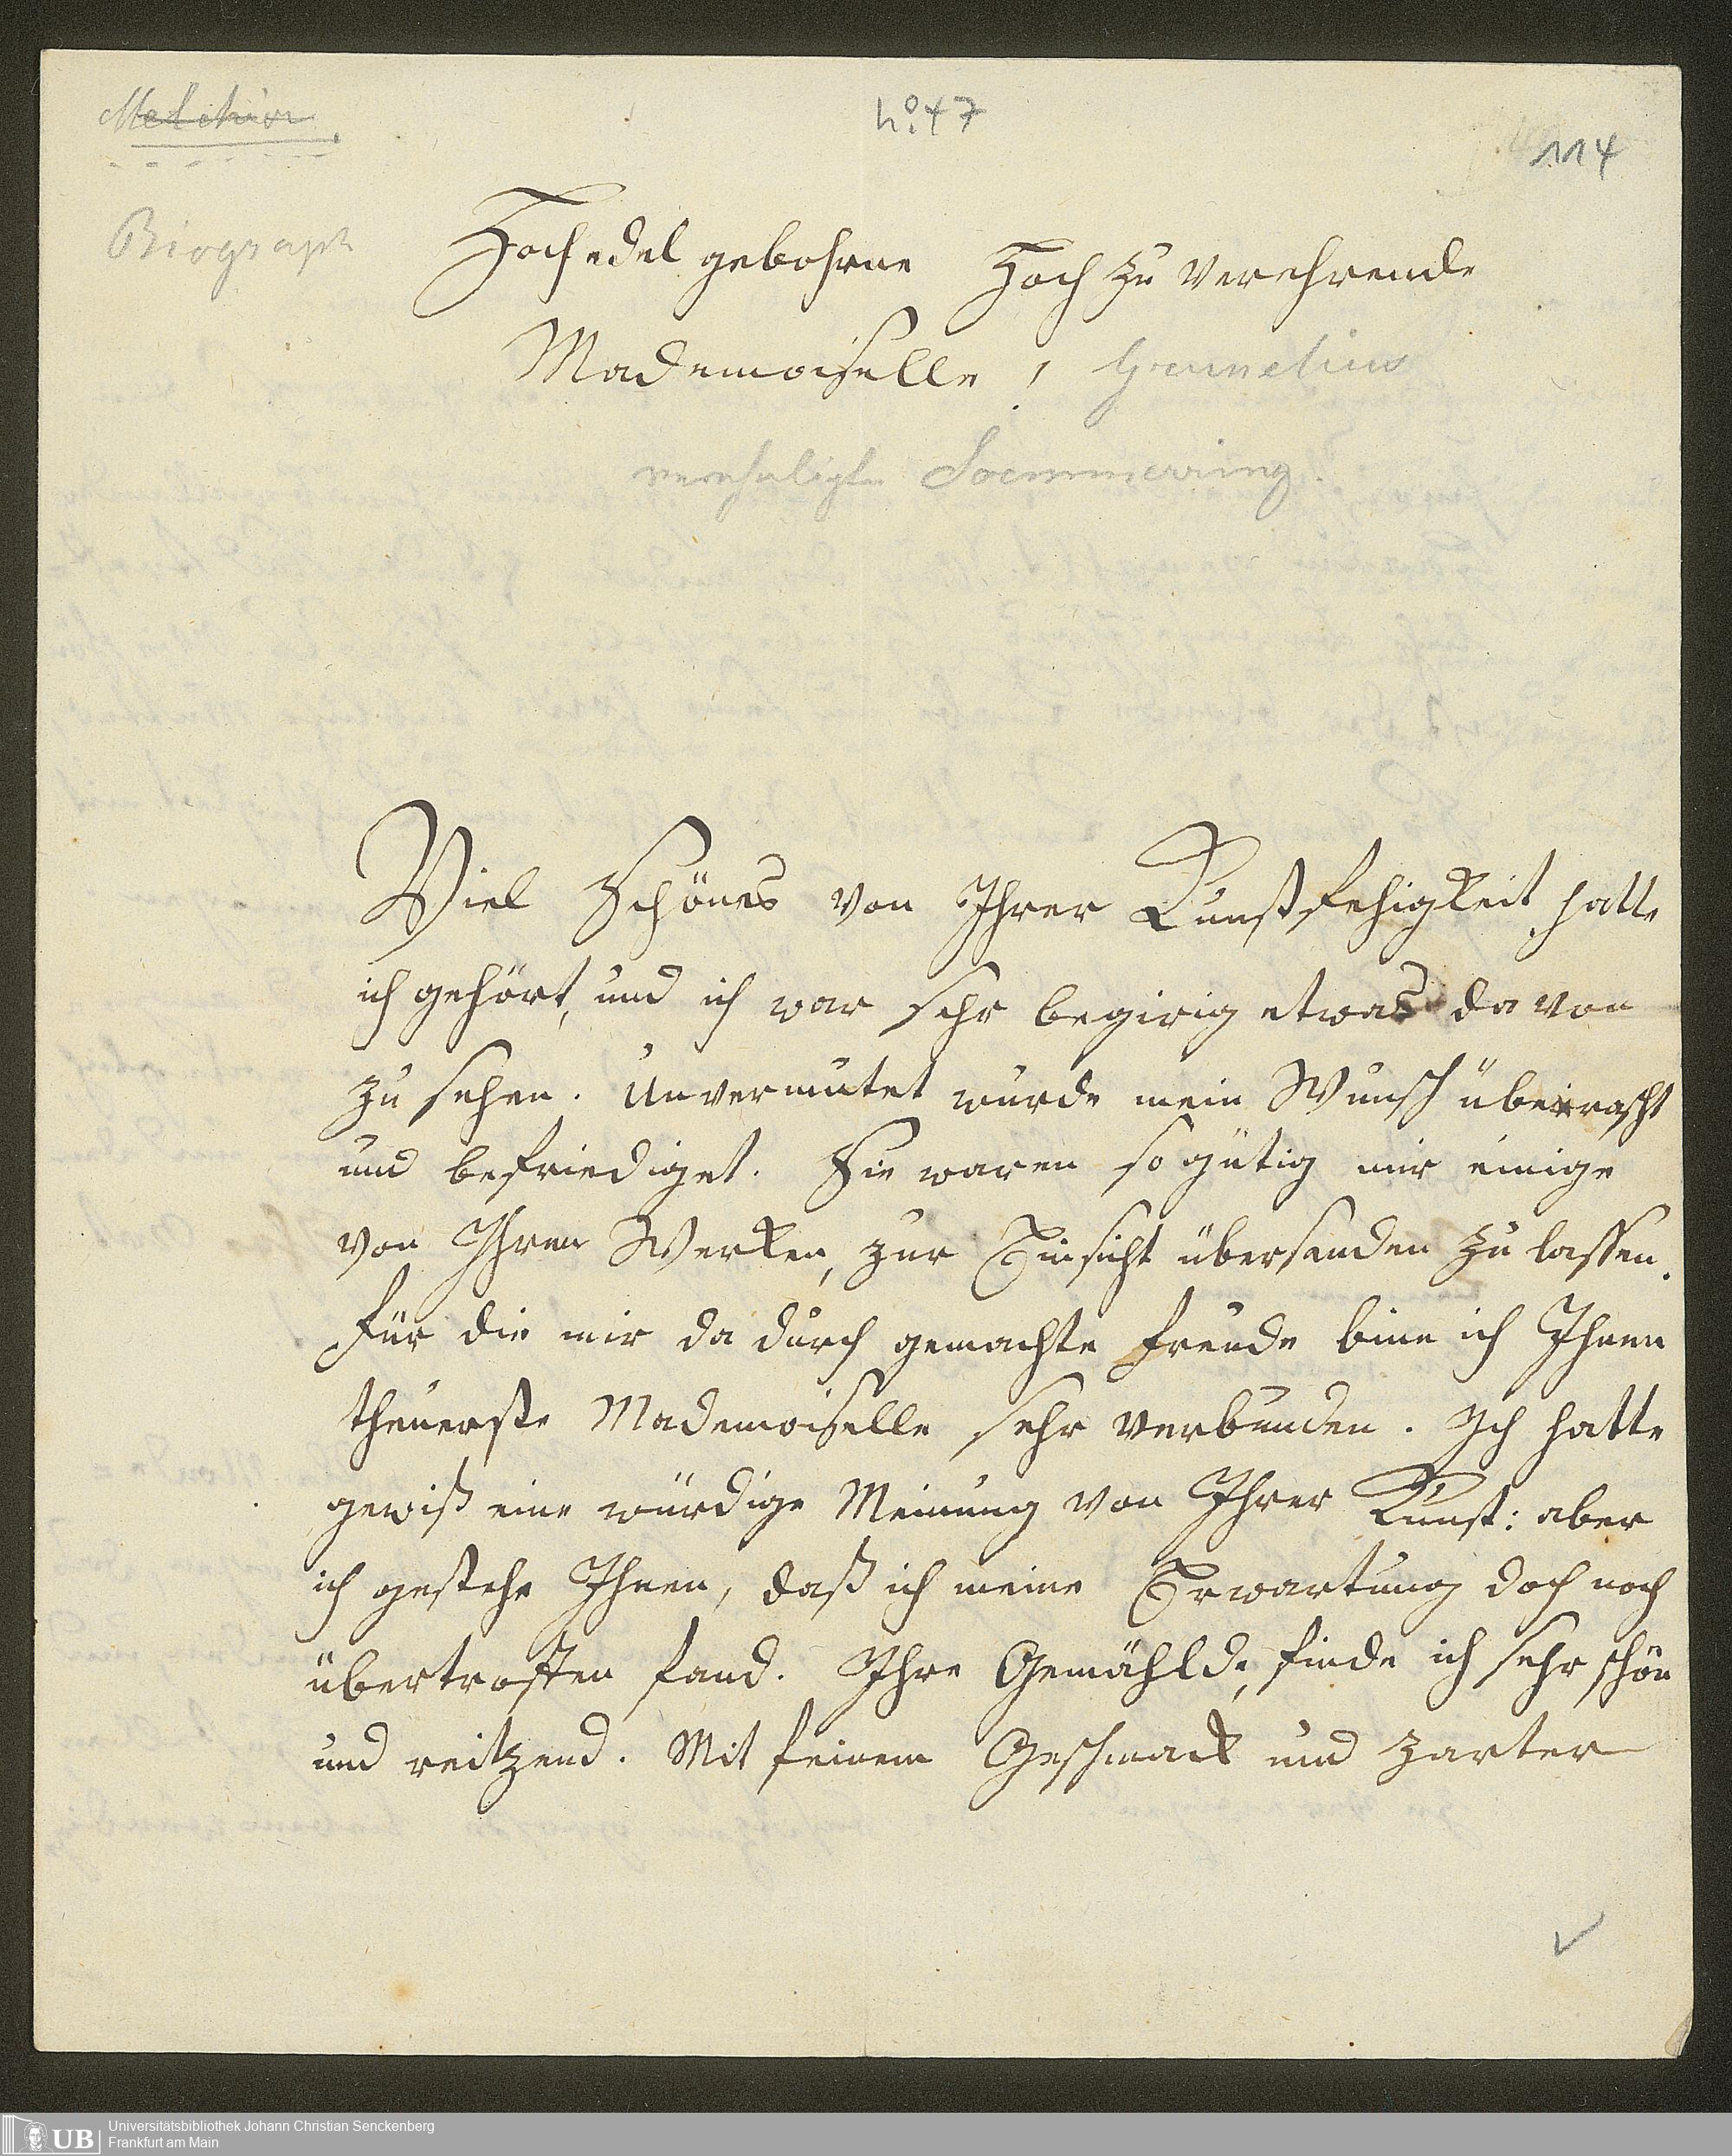 Melchior
No. 47
114
Biograph
Hochedel gebohrne Hoch zu verehrende
Mademoiselle! Grunelius
verehligte Soemmerring.
Viel Schönes von Ihrer Kunstfehigkeit hatte
ich gehört, und ich war sehr begirig etwas da von
zu sehen. Unvermutet wurde mein Wunsch überrascht
und befriediget. Sie waren so gütig mir einige
von Ihren Werken, zur Einsicht übersenden zu lassen.
Für die mir da durch gemachte Freude bine ich Ihnen
theuerste Mademoiselle sehr verbunden. Ich hatte
gewiß eine würdige Meinung von Ihrer Kunst: aber
ich gestehe Ihnen, daß ich meine Erwartung doch noch
übertroffen fand. Ihre Gemählde, finde ich sehr schön
und reitzend. Mit feinem Geschmack und zarter
UB
Universitätsbibliothek Johann Christian Senckenberg
Frankfurt am Main